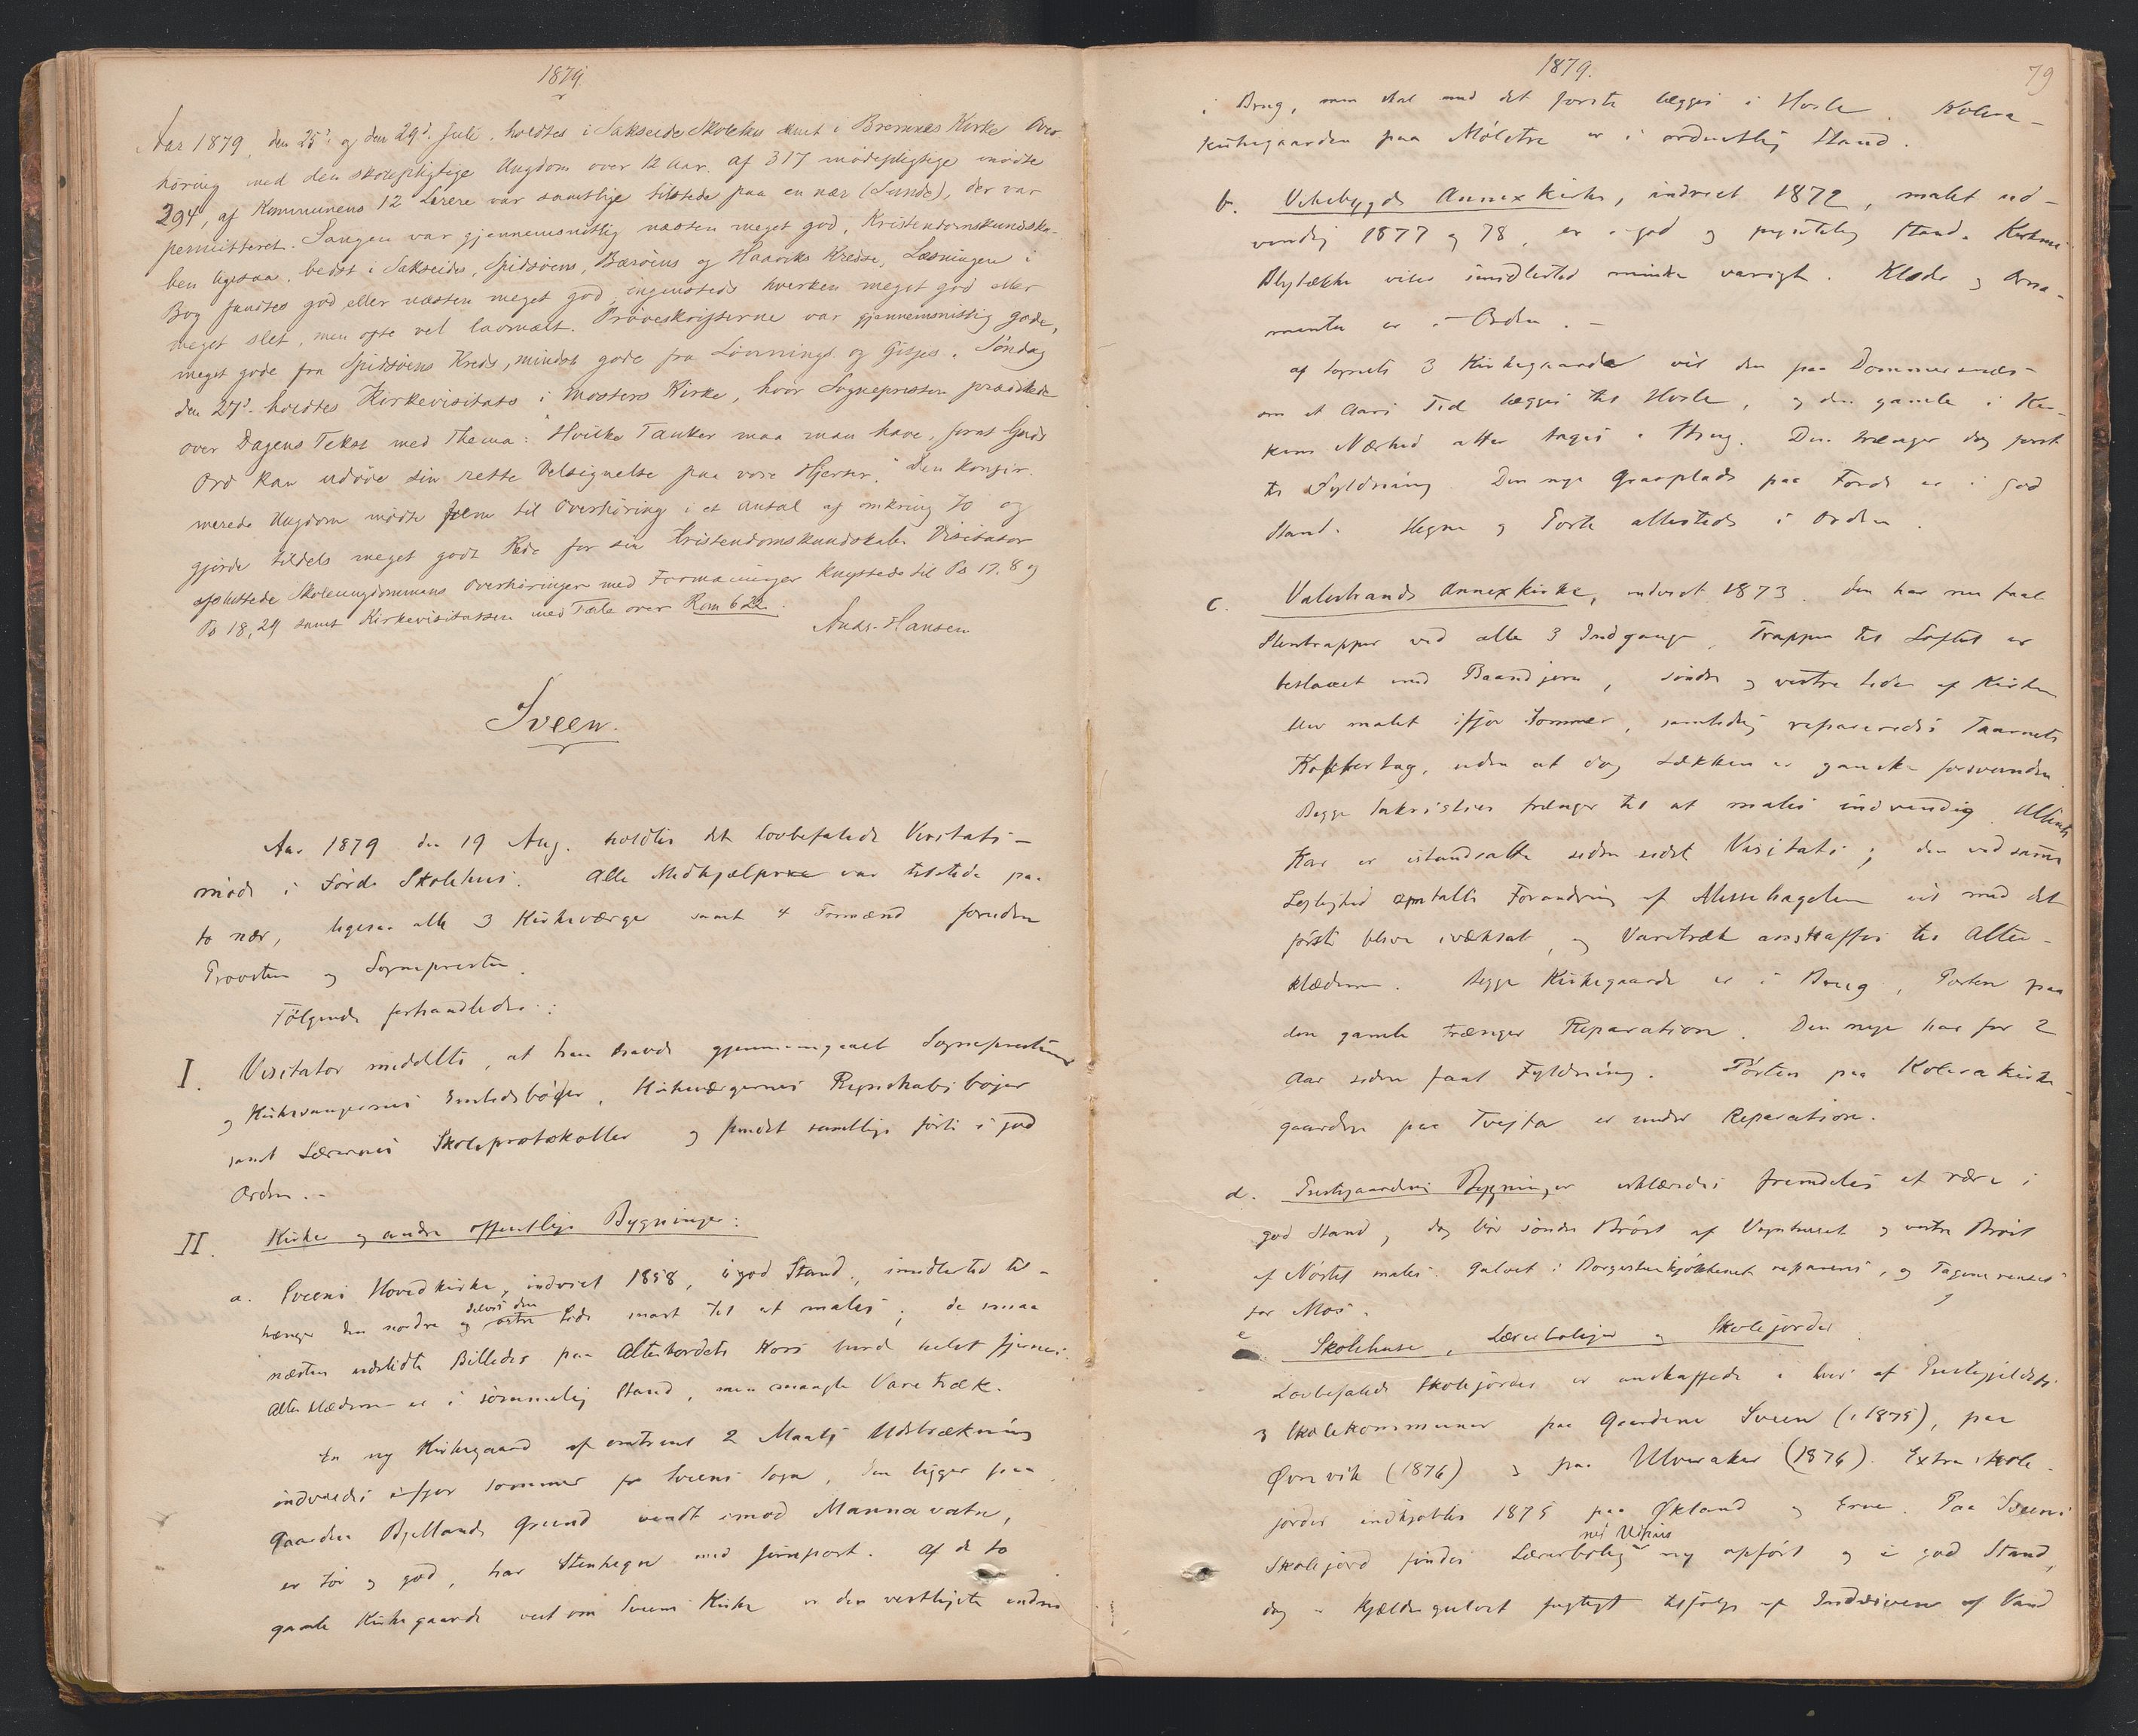 1879.
Aar 1879, den 25de og den 29de Juli, holdtes i Sakseide Skolehus samt i Bremnes Kirke Over-
höring med den skolepligtige Ungdom over 12 Aar. Af 317 mödepligtige mödte
294, af Kommunens 12 Lærere var samtlige tilstede paa en nær (Lunde), der var
permitteret. Sangen var gjennemsnitlig næsten meget god, Kristendomskundska-
ben ligesaa, bedst i Sakseides, Spidsöens, Bæröens og Haaviks Kredse, Læsningen i
Bog fandtes god eller næsten meget god, ingensteds hverken meget god eller
meget slet, men ofte vel lavmælt. Pröveskrifterne var gjennemsnitlig gode,
meget gode fra Spidsöens Kreds, mindst gode fra Lönnings og Gisjes. Söndag
den 27de holdtes Kirkevisitats i Mosters Kirke, hvor Sognepresten prædikede
over Dagens Tekst med Thema: "Hvilke Tanker maa man have, forat Guds
Ord kan udöve sin rette Velsignelse paa vore Hjerter." Den konfir-
merede Ungdom mödte frem til Overhöring i et Antal af omkring 70 og
gjorde tildels meget godt Rede for sin Kristendomskundskab. Visitator
afsluttede Skoleungdommens Overhöringer med Formaninger knyttede til Ps 17, 8 og
Ps 18, 29 samt Kirkevisitatsen med Tale over Rom 6 22.
Ands. Hansen
Sveen.
Aar 1879 den 19 Aug. holdtes det lovbefalede Visitats-
möde i Förde Skolehus. Alle Medhjælpere var tilstede paa
to nær, ligesaa alle 3 Kirkeværger samt 4 Formænd foruden
Provsten og Sognepresten.
Fölgende forhandledes:
I. Visitator meddelte, at han havde gjennemgaaet Sogneprestens
og Kirkesangernes Embedsböger, Kirkeværgernes Regnskabsböger
samt Lærernes Skoleprotokoller og fundet samtlige förte i god
Orden. -
II. Kirker og andre offentlige Bygninger:
a. Sveens Hovedkirke, indviet 1858, i god Stand, imidlertid til-
trænger den nordre og delvis den östre Side snart til at males; de smaa
næsten udslidte Billeder paa Alterbordets Kors burde helst fjernes.
Alterklæderne er i sömmelig Stand, men mangle Varetræk.
En ny Kirkegaard af omtrent 2 Maals Udstrækning
indviedes ifjor Sommer for Sveens Sogn, den ligger paa
Gaarden Bjellands Grund vendt imod Mannavatn,
er tör og god, har Stenhegn med Jernport. Af de to
gamle Kirkegaarde ved om Sveens Kirke er den vestligste endnu
1879.
79
i Brug, men skal med det förste lægges i Hvile. Kolera-
kirkegaarden paa Mölstre er i ordentlig Stand.
b. Vikebygds Annexkirke, indviet 1872, malet ud-
vendig 1877 og 78, er i god og pyntelig Stand. Kirkens
Blytække viser imidlertid mindre varigt. Klæder og Orna-
menter er i Orden. -
Af Sognets 3 Kirkegaarde vil den paa Dommersnes
om et Aars Tid lægges til Hvile, og den gamle i Kir-
kens Nærhed atter tages i Brug. Den trænger dog först
til Fyldning. Den nye Gravplads paa Förde er i god
Stand. Hegne og Porte allesteds i Orden.
c. Valestrands Annexkirke, indviet 1873. Den har nu faaet
Stentrapper ved alle 3 Indgange, Trappen til Loftet er
beslaaet med Baandjern, söndre og vestre Side af Kirken
blev malet ifjor Sommer, samtidig repareredes Taarnets
Kobbertag, uden at dog Lækken er ganske forsvunden.
Begge Sakristier trænger til at males indvendig. Alterets
Kar er istandsatte siden sidst Visitats; den ved samme
Lejlighed omtalte Forandring af Messehagelen vil med det
förste blive iværksat, og Varetræk anskaffes til Alter-
klæderne. Begge Kirkegaarde er i Brug, Porten paa
den gamle trænger Reparation. Den nye har for 2
Aar siden faaet Fyldning. Porten paa Kolerakirke-
gaarden paa Tveita er under Reparation.
d. Prestegaardens Bygninger erklæredes fremdeles at være i
god Stand, dog bör söndre Bröst af Vognhuset og vestre Bröst
af Nöstet males. Gulvet i Borgestuekjökkenet repareres, og Tagene renses
for Mos.
e. Skolehuse, Lærerboliger og Skolejorder.
Lovbefalede Skolejorder er anskaffede i hver af Prestegjeldets
3 Skolekommuner paa Gaardene Sveen (i 1875), paa
Øvrevik (1876) og paa Ulveraker (1876). Extra Skole-
jorder indkjöbtes 1875 paa Økland og Erve. Paa Sveens
Skolejord findes Lærerbolig med Udhus ny opfört og i god Stand,
dog er Kjældergulvet fugtigt tilfölge af Inddriven af Vand